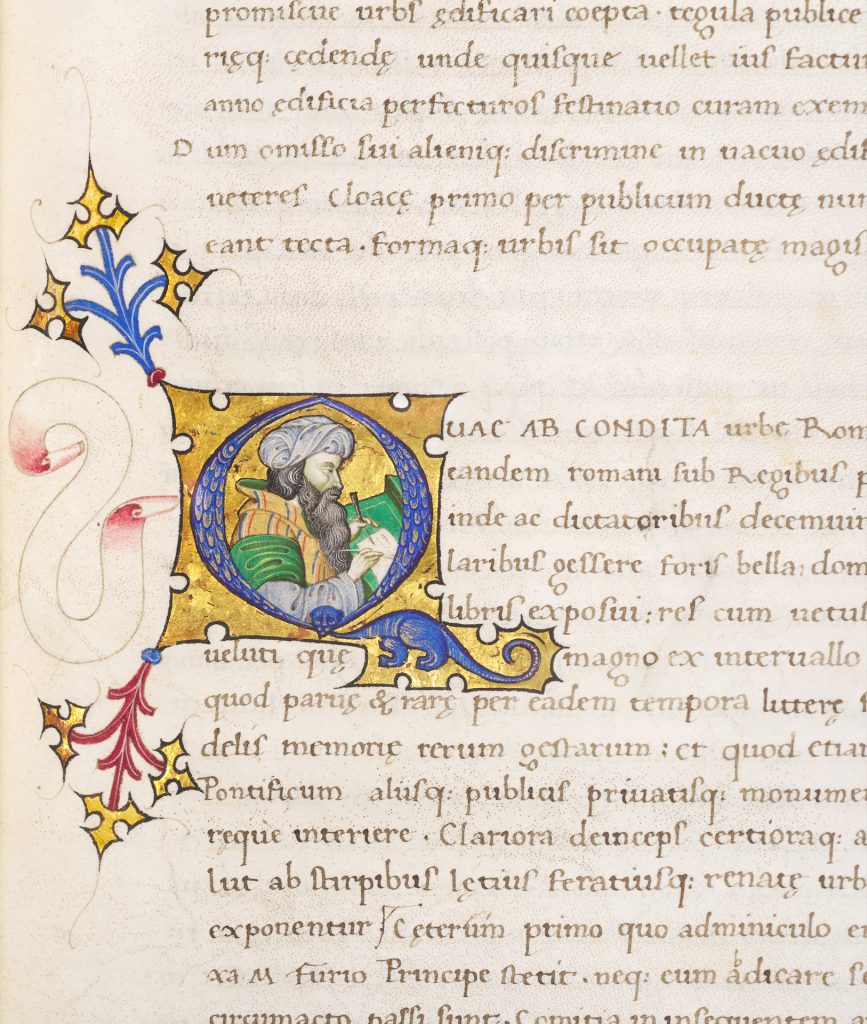 promiscue urbs ędificari coepta · tegula publice
rięq: cędendę unde quisque uellet ius factum
anno ędificia perfecturos festinatio curam exem
Dum omisso sui alieniq: discrimine in uacuo ędif
ueteres cloacę primo per publicum ductę nun
eant tecta · formaq: urbis sit occupatę magis
QUAE AB CONDITA urbe Rom
eandem romani sub Regibus p
inde ac dictatoribus decemui
laribus gessere foris bella: dom
libris exposui: res cum uetu
ueluti quę magno ex interuallo
quod paruę & rarę per eadem tempora litterę f
delis memorię rerum gestarum: et quod etiam
Pontificum aliisq: publicis priuatisq: monume
reque interiere · Clariora deinceps certioraq: a
lut ab stirpibus lętius feratiusq: renatę urb
exponentur Cęterum primo quo adminiculo er
xa M furio Principe stetit · neq: eum abdicare se
circumacto passi sunt · Comitia in insequentem a